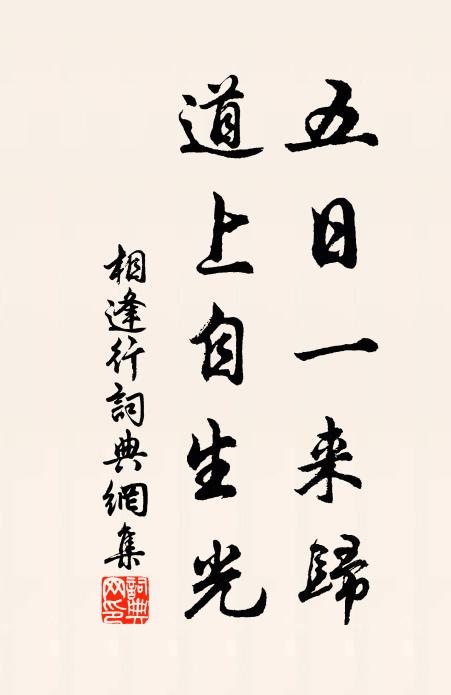 五日一来歸
道上自生光
相逢行詞典網集
詞典網印